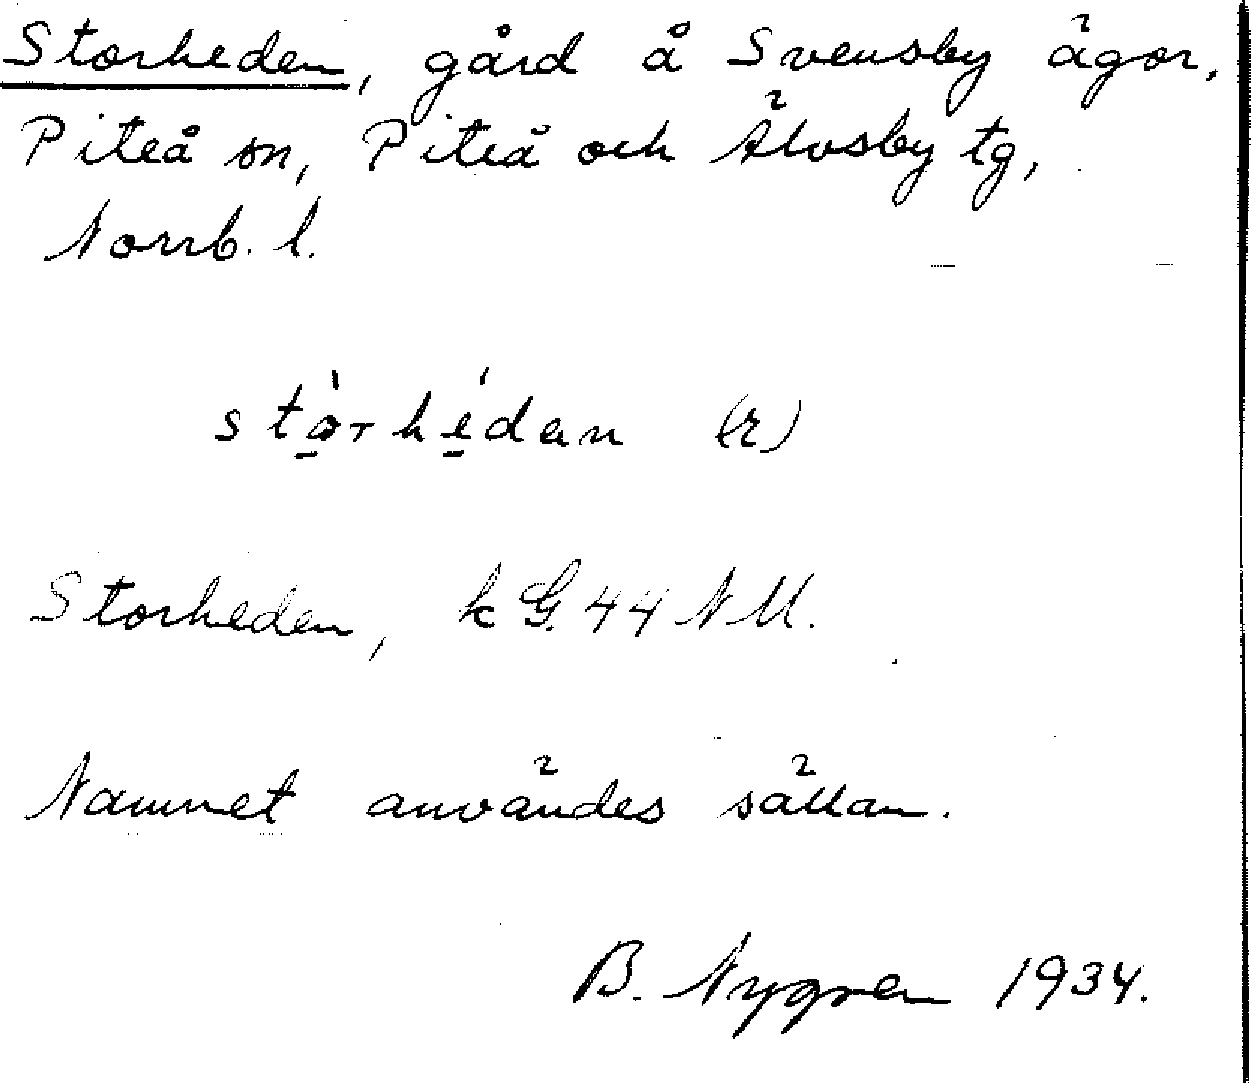 Storheden, gård å Svensby ägor,
Piteå sn, Piteå och Älvsby tg,
Norrb. l.
stò̱rhé̱dan (r)
Storheden, k G. 44 NM.
Namnet användes sällan.
B. Nygren 1934.